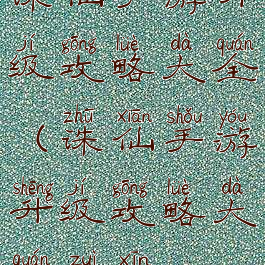 诛仙手游升
jí gōng lüè dà quán
级攻略大全
zhū xiān shǒu yóu
（诛仙手游
shēng jí gōng lüè dà
升级攻略大
quán zuì xīn